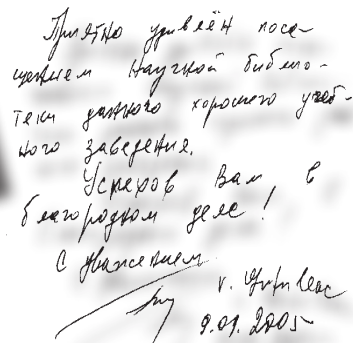 Приятно удивлён посе-
щением Научной библио-
теки данного хорошего учеб-
ного заведения.
Успехов Вам в
благородном деле!
С уважением
v.
9.09.2005